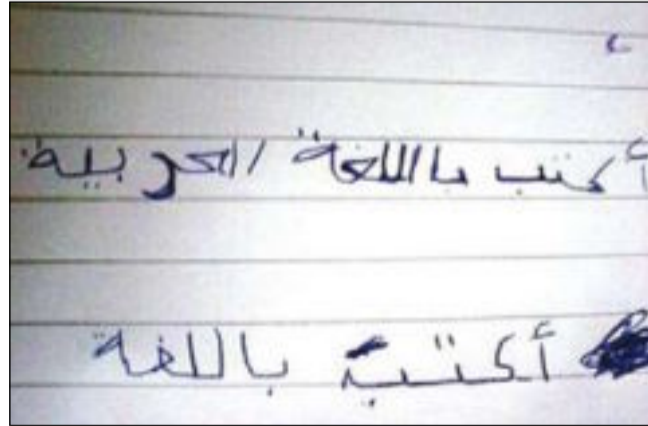 أكتب باللغة العربية
أكتب باللغة